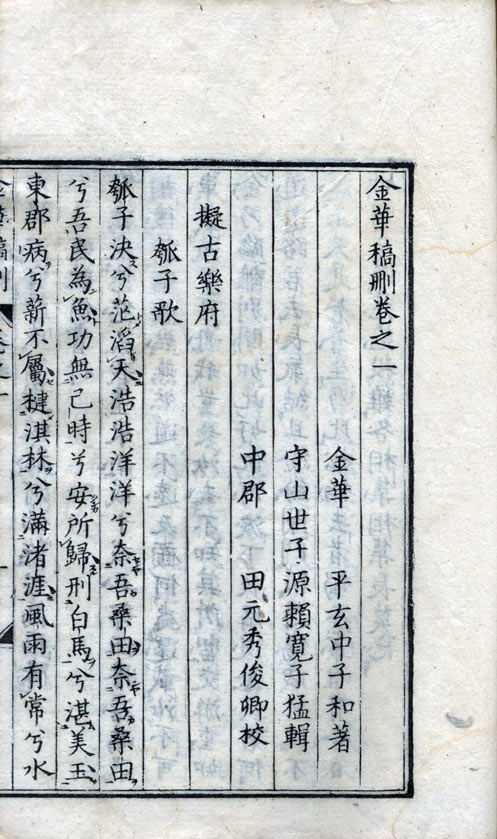 金華稿刪卷之一
金華　平玄中子和著
守山世子源賴寬子猛輯
中郡　田元秀俊卿校
擬古樂府
瓠子歌
瓠子決兮茫滔天浩浩洋洋兮奈吾桑田奈吾桑田
兮吾民為魚功無已時兮安所歸刑白馬兮湛美玉
東郡病兮薪不屬楗淇林兮滿渚涯風雨有常兮水